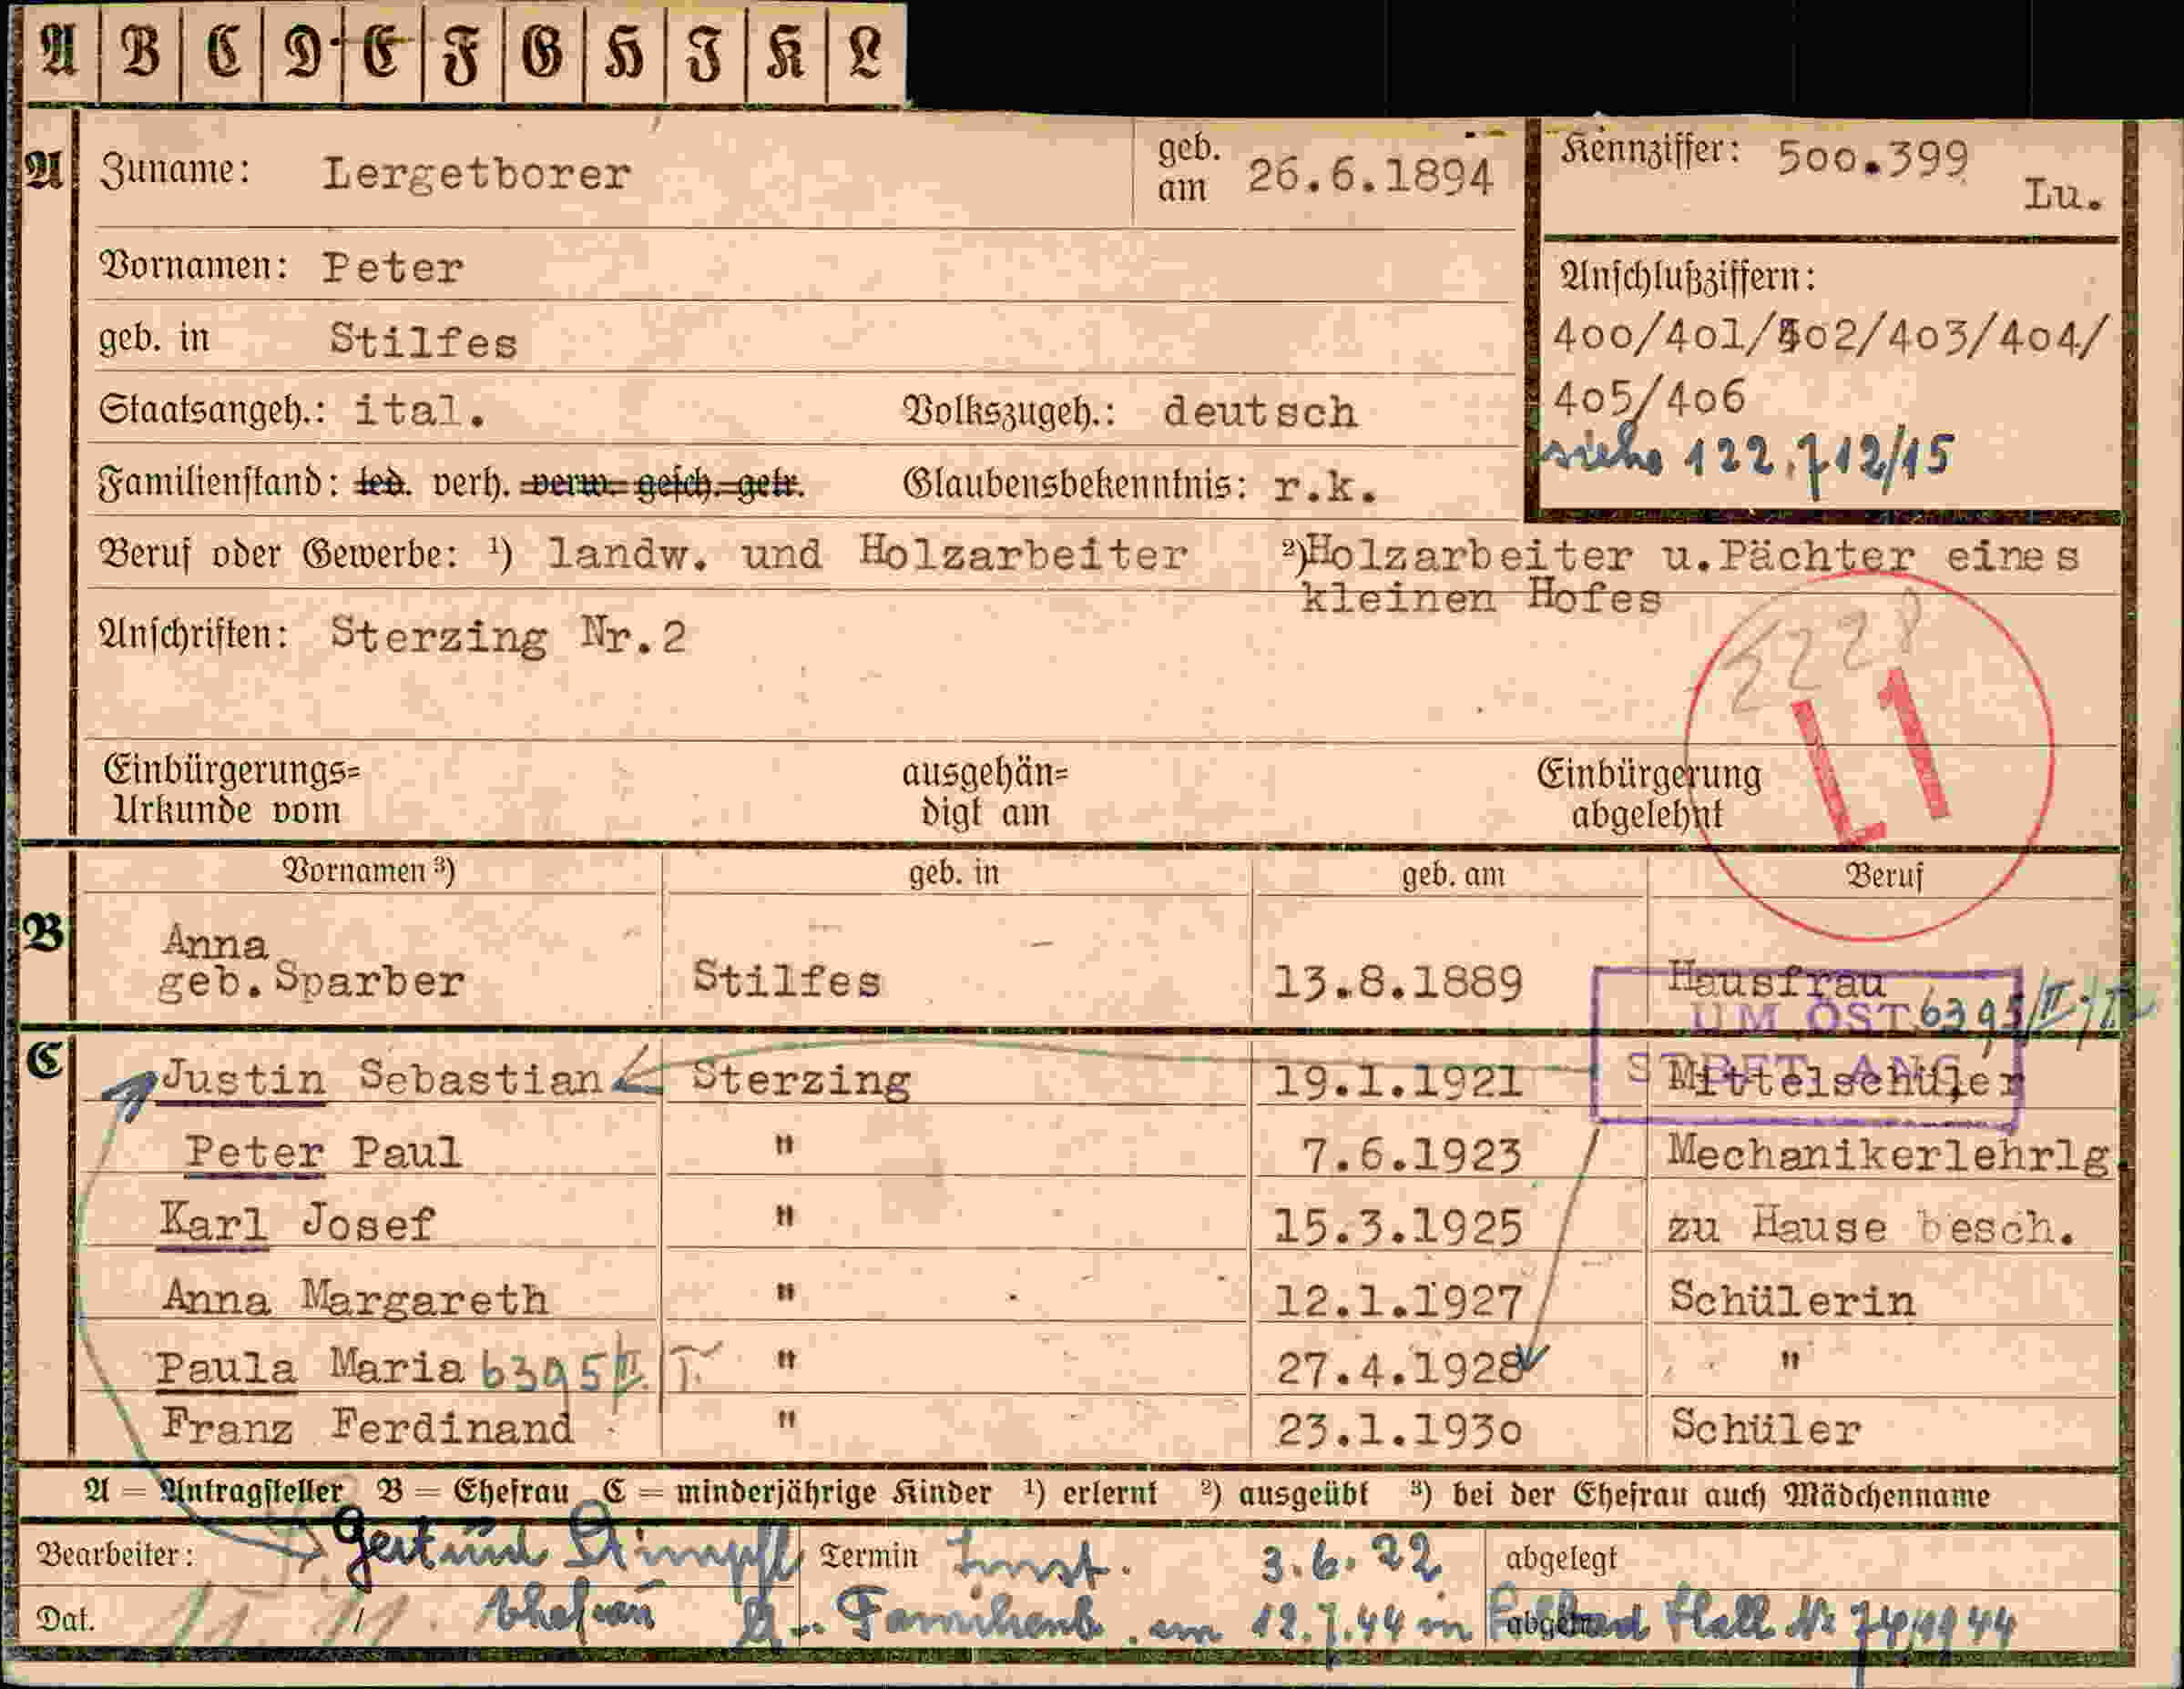 A B C D E F G H I K L
A Zuname: Lergetborer geb. am 26.6.1894 Kennziffer: 500.399 Lu.
Vornamen: Peter
Anschlußziffern:
geb. in Stilfes 400/401/402/403/404/
405/406
Staatsangeh.: ital. Volkszugeh.: deutsch
siehe 122.712/15
Familienstand: led. verh. verw. gesch. getr. Glaubensbekenntnis: r.k.
Beruf oder Gewerbe: ¹) landw. und Holzarbeiter ²)Holzarbeiter u.Pächter eines
kleinen Hofes
Anschriften: Sterzing Nr.2
L1
Einbürgerungs= ausgehän= Einbürgerung
Urkunde vom digt am abgelehnt
Vornamen ³) geb. in geb. am Beruf
B Anna
geb.Sparber Stilfes 13.8.1889 Hausfrau
UM OST 6395/II
C Justin Sebastian Sterzing 19.1.1921 Mittelschüler
Peter Paul " 7.6.1923 Mechanikerlehrlg
Karl Josef " 15.3.1925 zu Hause besch.
Anna Margareth " 12.1.1927 Schülerin
Paula Maria 6395/II. " 27.4.1928 "
Franz Ferdinand " 23.1.1930 Schüler
A = Antragsteller B = Ehefrau C = minderjährige Kinder ¹) erlernt ²) ausgeübt ³) bei der Ehefrau auch Mädchenname
Bearbeiter: Gertrud Termin 3.6.22 abgelegt
Dat. 11. 11. Ehefrau Familienb. am 12.7.44 in Hall Nr 74/1944